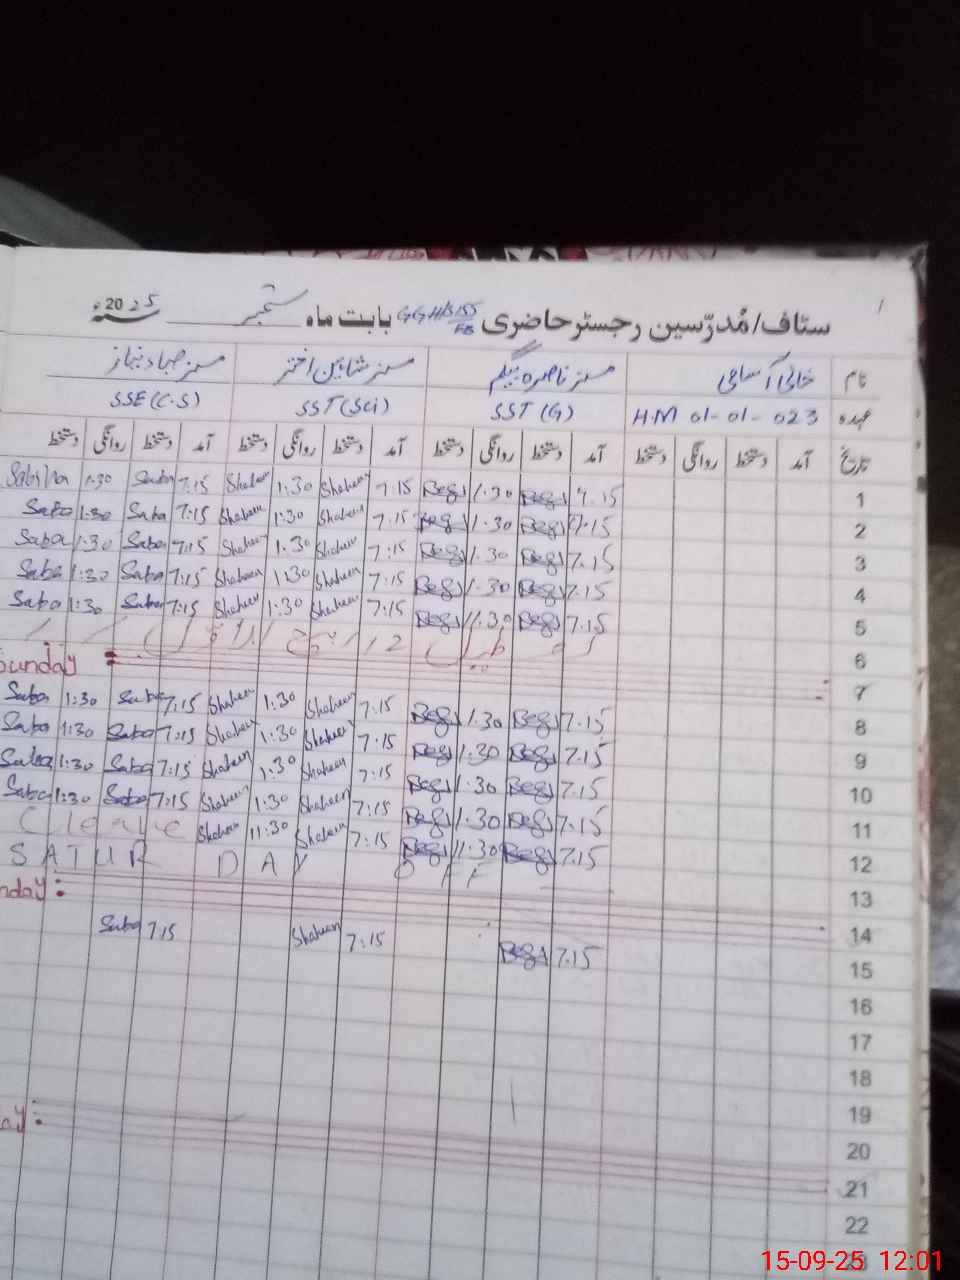 سٹاف/مُدرّسین رجسٹر حاضری GGHS 155 EB بابت ماہ ستمبر 2025ء
نام خالی آسامی مسز ناصرہ بیگم مسز شاہین اختر مسز صباء نیاز
عہدہ H.M 01-01-023 SST (G) SST (Sci) SSE (C.S)
تاریخ آمد دستخط روانگی دستخط آمد دستخط روانگی دستخط آمد دستخط روانگی دستخط آمد دستخط روانگی دستخط
1 7.15 1.30 7.15 Shaheen 1:30 Shaheen 7.15 Saba 1.30
2 7.15 1.30 7.15 Shaheen 1:30 Shaheen 7:15 Saba 1:30 Saba
3 7.15 1.30 7:15 Shaheen 1.30 Shaheen 7:15 Saba 1:30 Saba
4 7.15 1.30 7:15 Shaheen 1:30 Shaheen 7:15 Saba 1:30 Saba
5 7.15 1.30 7:15 Shaheen 1:30 Shaheen 7:15 Saba 1:30 Saba
6 تعطیل 12 ربیع الاول
7 Sunday :
8 7.15 1.30 7:15 Shaheen 1:30 Shaheen 7.15 Saba 1:30 Saba
9 7.15 1.30 7:15 Shaheen 1:30 Shaheen 7:15 Saba 1:30 Saba
10 7.15 1.30 7:15 Shaheen 1:30 Shaheen 7:15 Saba 1:30 Saba
11 7.15 1.30 7:15 Shaheen 1:30 Shaheen 7:15 Saba 1:30 Saba
12 7.15 11.30 7:15 Shaheen 11:30 Shaheen C leave
13 SATUR DAY OFF
14 nday :
15 7.15 7:15 Shaheen 7.15 Saba
16
17
18
19
20
21 ay :
22
15-09-25 12:01